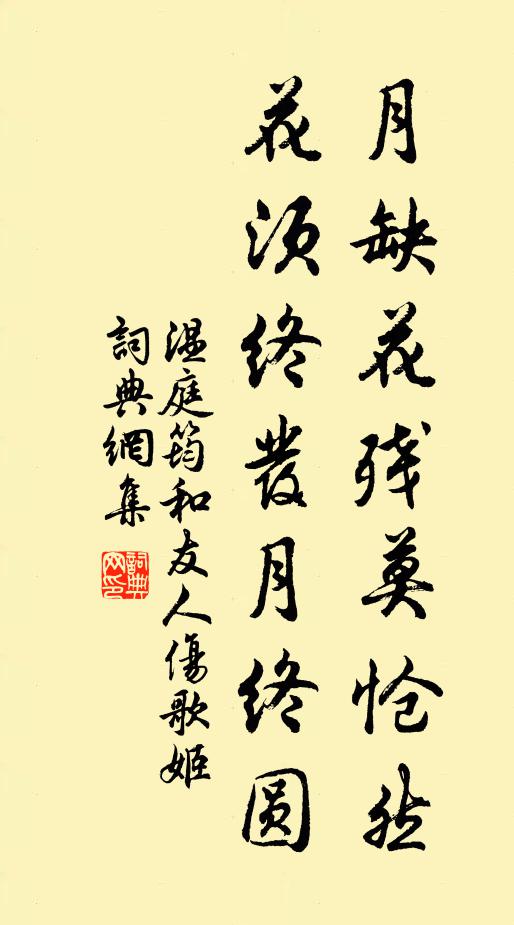 月缺花残莫怆然
花须终發月终圆
温庭筠和友人傷歌姬
詞典網集
詞典
网印